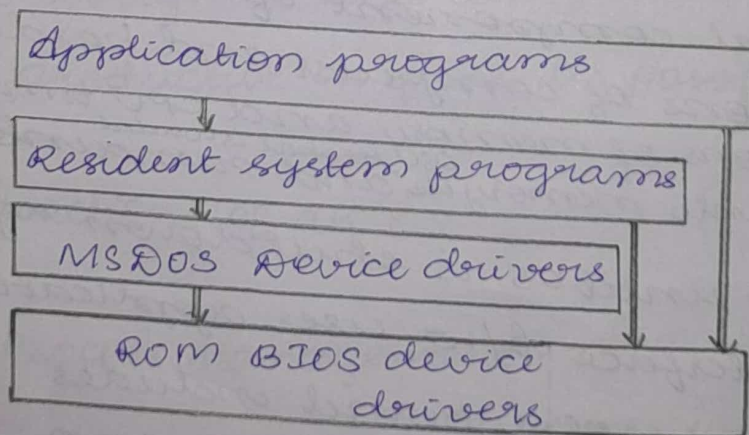 Application programs
Resident system programs
MSDOS Device drivers
ROM BIOS device
drivers